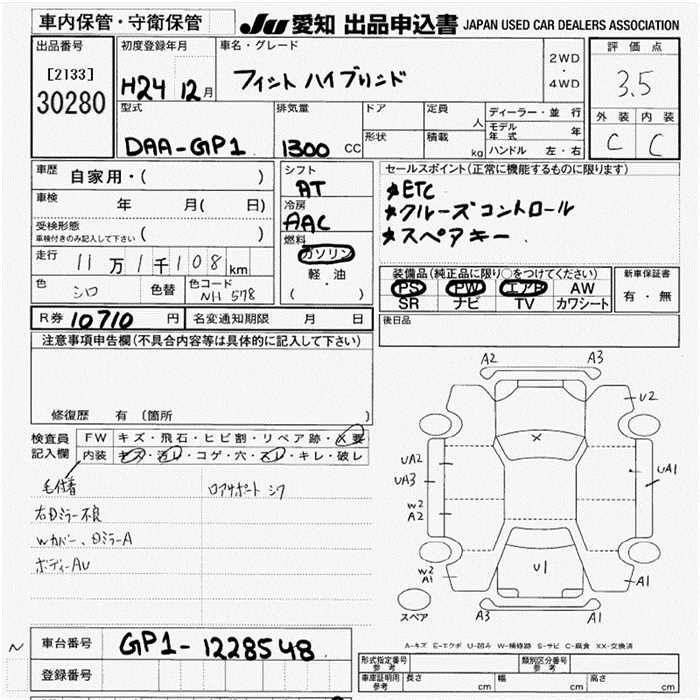 車内保管・守衛保管
JU 愛知 出品申込書 JAPAN USED CAR DEALERS ASSOCIATION
出品番号
[2133]
30280
初度登録年月
H24 12月
車名・グレード
フィット ハイブリッド
2WD
・
4WD
評価点
3.5
外装 内装
C C
型式
DAA-GP1
排気量
1300 CC
ドア
形状
定員
人
積載
kg
ディーラー・並行
モデル年式 年
ハンドル 左・右
車歴
自家用・( )
車検
年 月( 日)
受検形態
車検付きのみ記入して下さい ( )
走行
11万1千108km
色
シロ
色替
色コード
NH 578
シフト
AT
冷房
AAC
燃料
ガソリン
軽・油
( )
セールスポイント(正常に機能するものに限ります)
★ETC
★クルーズコントロール
★スペアキー
装備品(純正品に限り○をつけてください)
PS PW エアB AW
SR ナビ TV カワシート
新車保証書
有・無
R券 10710 円
名変通知期限 月 日
後日品
注意事項申告欄(不具合内容等は具体的に記入して下さい)
修復歴 有 (箇所 )
検査員
記入欄
FW キズ・飛石・ヒビ割・リペア跡・X要
内装 キズ・汚レ・コゲ・穴・スレ・キレ・破レ
毛付着
右Dミラー不良
Wカバー、Dミラー A
ボディーAU
ロアサポート シワ
A2 A3
U2
X
UA2
UA3
UA1
W2
A2
W2
A1
U1
A1
スペア
A3 A1
A-キズ E-エクボ U-凹み W-補修跡 S-サビ C-腐食 XX-交換済
車台番号
GP1-1228548
登録番号
形式指定番号
参考
類別区分番号
参考
車庫証明用
参考
長さ cm
幅 cm
高さ cm